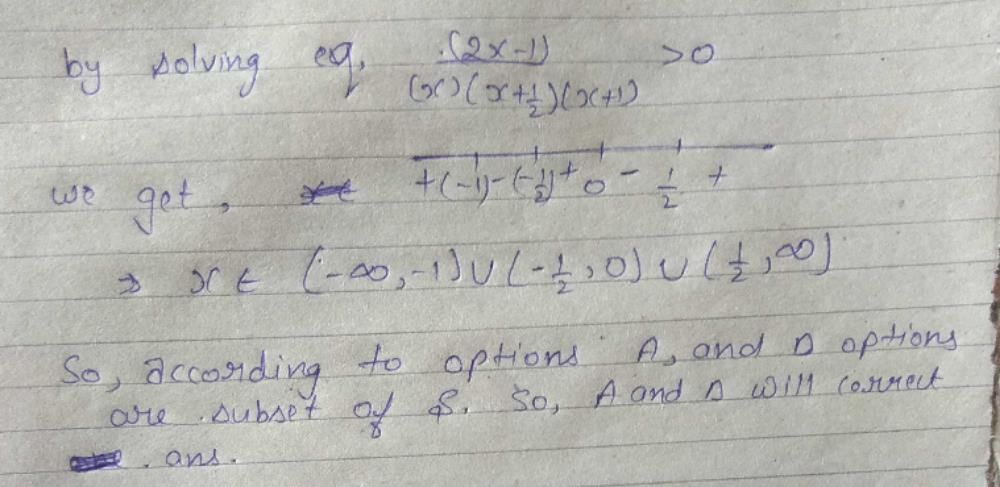 by solving eq. (2x-1) >0
(x)(x+1/2)(x+1)
we get, +(-1)-(-1/2)+ 0 - 1/2 +
⇒ x ∈ (-∞,-1)∪(-1/2,0)∪(1/2,∞)
So, according to options A, and D options
are subset of S. So, A and D will correct
ans.